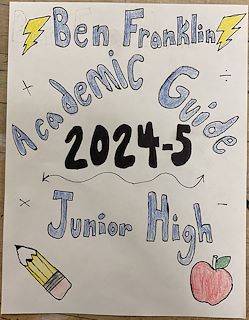 Ben Franklin
Academic Guide
2024-5
Junior High